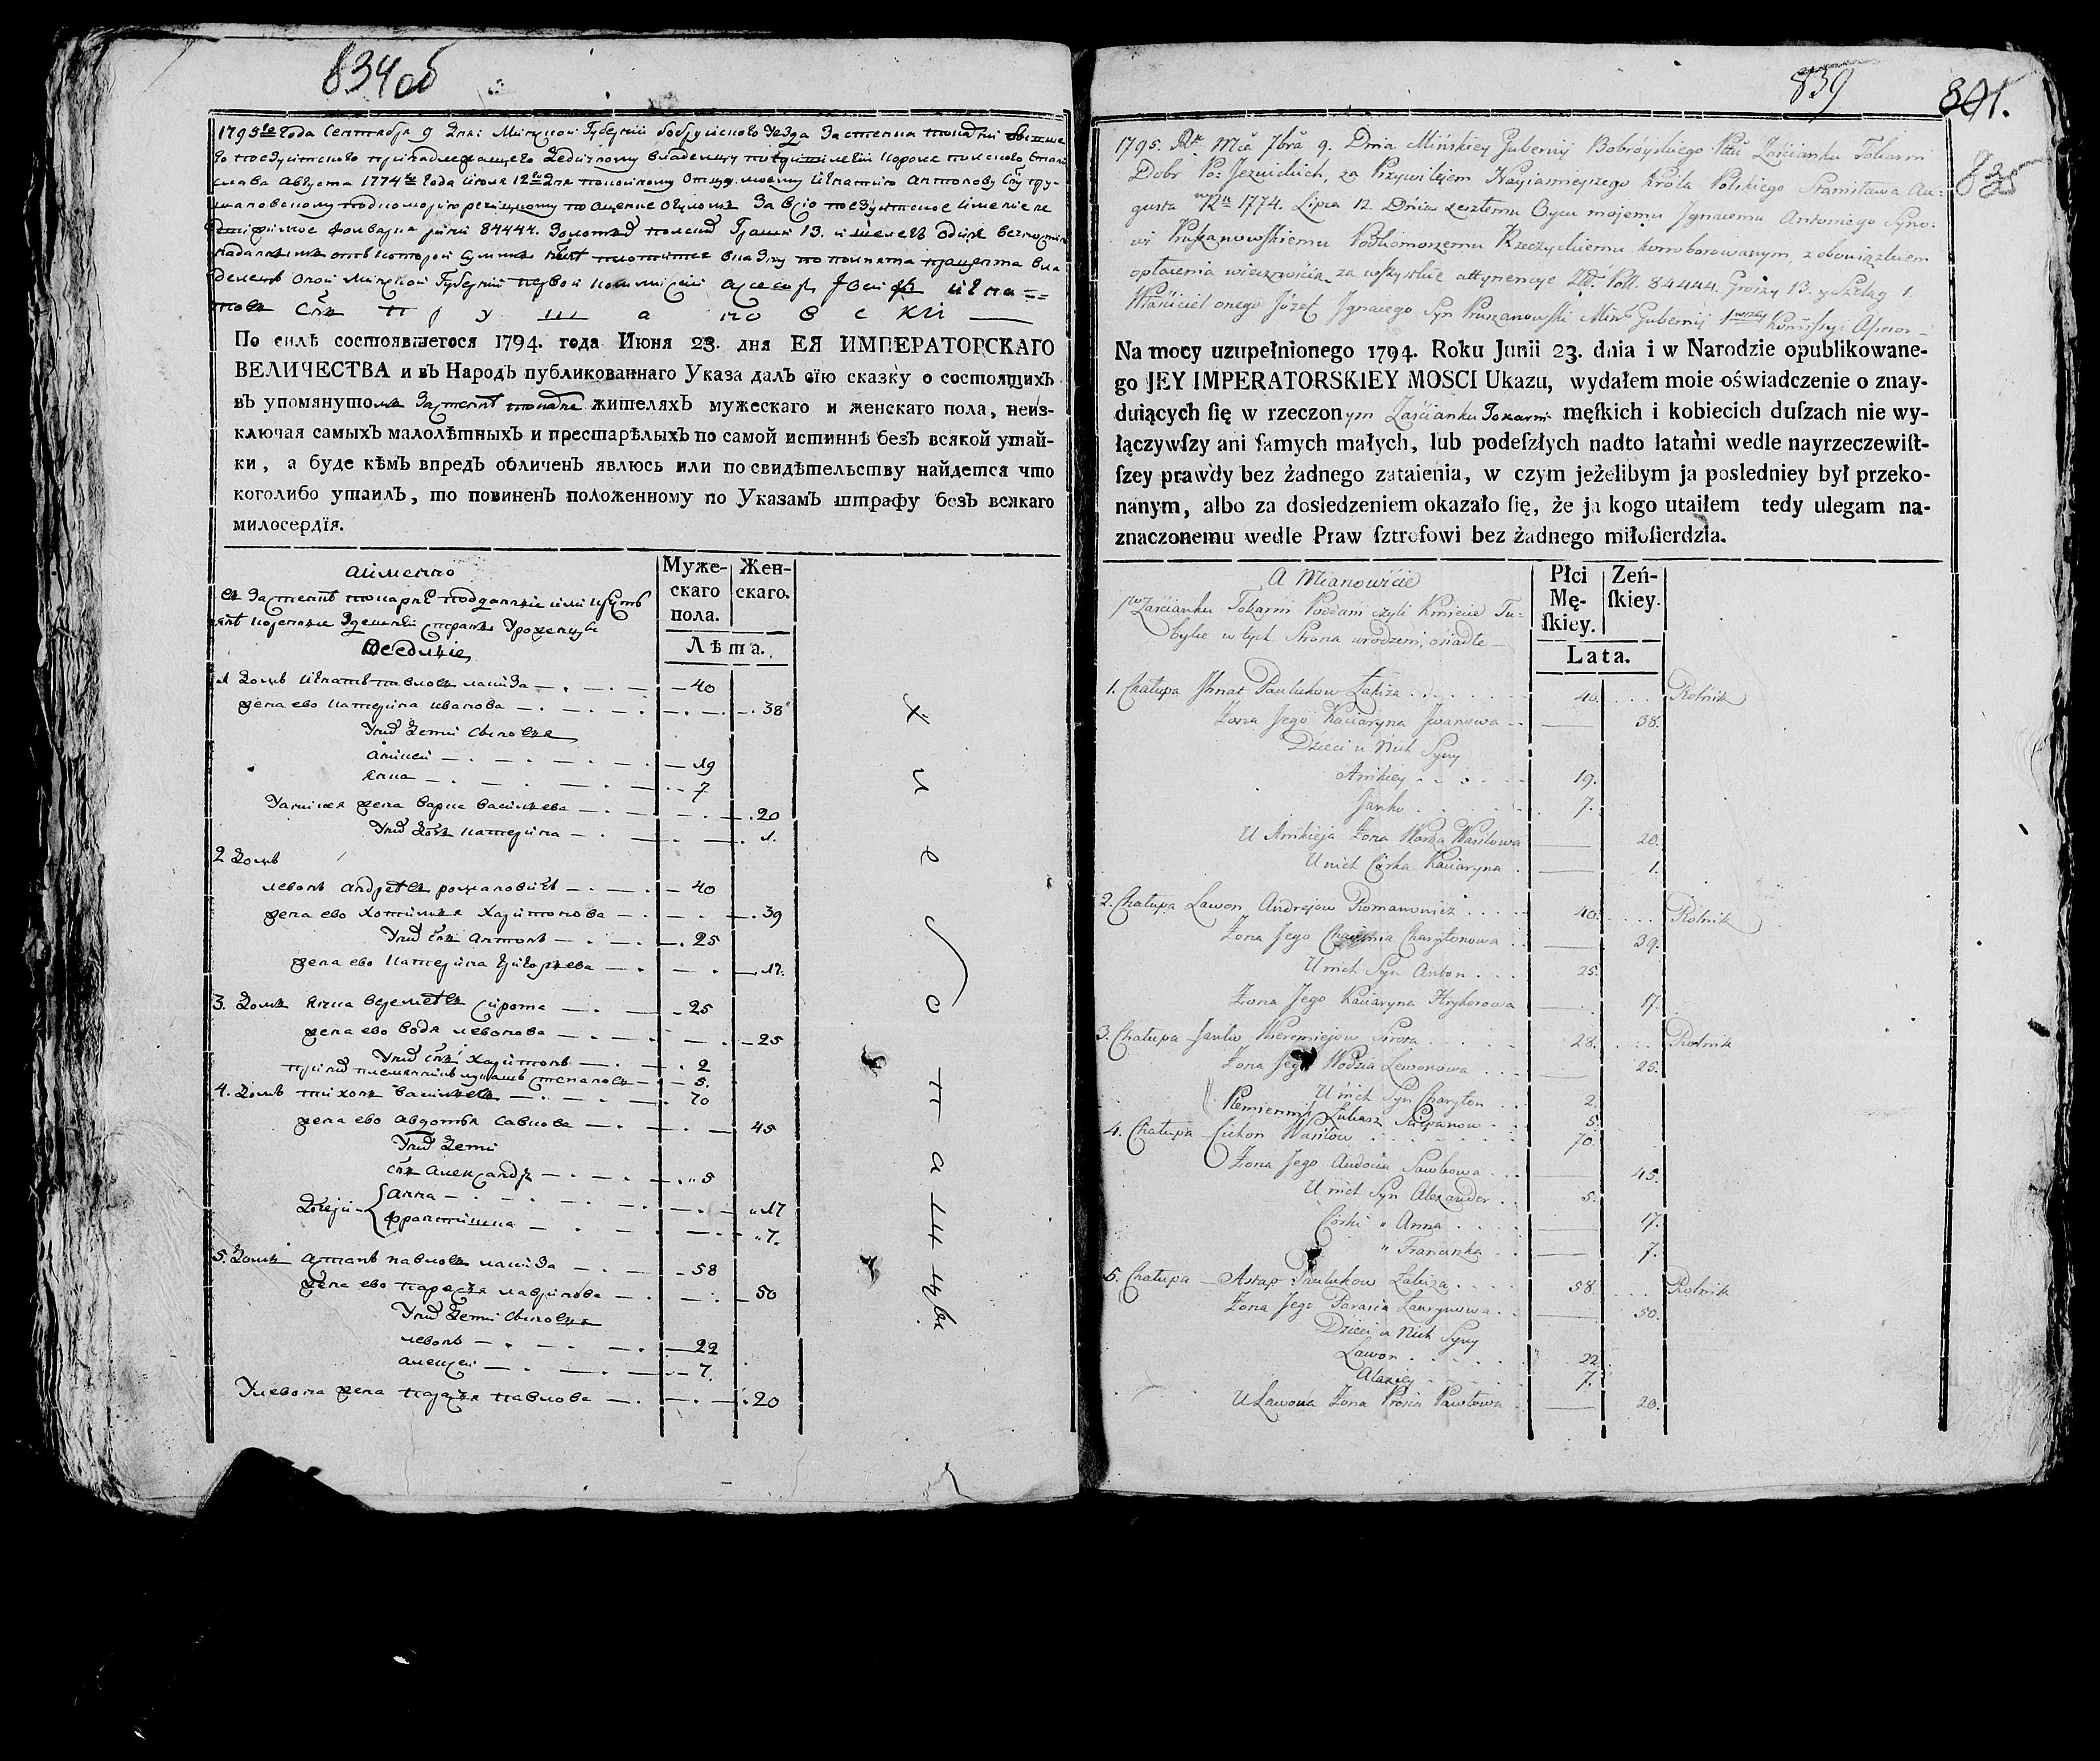 834об
1795го года Сентября 9 дня: Минской Губернии бобруйского уезда Застенка
слава Августа 1774го года июля 12го дня покойному отцу моему Игнатию Антонову сну пру-
шановскому подкоморию речицкому
84444. Золотых польских Грошей 13. и шелегъ один
По силѣ состоявшегося 1794. года Июня 23. дня ЕЯ ИМПЕРАТОРСКАГО
ВЕЛИЧЕСТВА и въ Народъ публикованнаго Указа далъ сїю сказку о состоящихъ
въ упомянутомъ Застенкѣ жителяхъ мужескаго и женскаго пола, неиз-
ключая самыхъ малолѣтныхъ и престарѣлыхъ по самой истиннѣ безъ всякой утай-
ки, а буде кѣмъ впредъ обличенъ явлюсь или по свидѣтельству найдется что
коголибо утаилъ, то повиненъ положенному по Указамъ штрафу безъ всякаго
милосердїя.
Муже-
скаго
пола.
Жен-
скаго.
Лѣта.
а именно
Оседлые
1 Домъ Игнатъ павловъ лапиза 40
жена ево катерина иванова 38
У них дети сыновья
аникей 19
янка 7
У аникея жена варка васильева 20
У них дочь катерина 1.
2 Домъ
левонъ андреевъ романовичъ 40
жена ево харитонова 39
У них снъ антонъ 25
жена ево катерина григорьева 17.
3. Домъ янка веремеевъ сирота 25
жена ево водя левонова 25
У них снъ харитонъ 2
племянникъ лукашъ степановъ 5.
4. Домъ тихонъ васильевъ 70
жена ево авдотья савкова 45
У них дети
снъ александръ 5
дочери анна 17
францишка 7.
5. Домъ астапъ павловъ лапиза 58
жена ево парася лавринова 50
У них дети сыновья
левонъ 22
алексей 7.
У левона жена павлова 20
хлебопашцы
839
801.
835
1795. Rku Mca 7bra 9. Dnia Mińskiey Gubernij Bobróyskiego Pttu Zaścianku Tokarni
Dobr Po: Jezuickich, za Przywilejem Nayiasnieyszego Króla Polskiego Stanisława Au=
gusta 1774. Lipca 12. Dnia zeszłemu Oycu mojemu Jgnacemu Antoniego Syno=
wi Pruszanowskiemu Podkomorzemu Rzeczyckiemu korroborowanym, z obowiązkiem
opłacenia za wszystkie attynencye Złt. Poll. 84444. Groszy 13. y Szeląg 1.
Właściciel onego Józef Jgnacego Syn Pruszanowski Minˢ Gubernij 1wszey Kommissyi Assesor
Na mocy uzupełnionego 1794. Roku Junii 23. dnia i w Narodzie opublikowane-
go JEY IMPERATORSKIEY MOSCI Ukazu, wydałem moie oświadczenie o znay-
duiących ſię w rzeczonym Zaścianku Tokarni męſkich i kobiecich duſzach nie wy-
łączywſzy ani ſamych małych, lub podeſzłych nadto latami wedle nayrzeczewiſt-
ſzey prawdy bez żadnego zataienia, w czym jeżelibym ja posledniey był przeko-
nanym, albo za dosledzeniem okazało ſię, że ja kogo utaiłem tedy ulegam na-
znaczonemu wedle Praw ſztrofowi bez żadnego miłoſierdzia.
Płci
Mę-
ſkiey.
Zeń-
ſkiey.
Lata.
A Mianowićie
Zaścianku Tokarni Poddani czyli Kmiecie Tu=
bylce w tych Strona urodzeni, osiadłe
1. Chałupa Jhnat Pawlukow Łapiza 40. Rolnik
Żona Jego Kaciaryna Jwanowa 38.
Dzieci u Nich Syny
Anikiey 19.
Janko 7.
U Anikieja Żona Warka Wasilowa 20.
U nich Córka Kaciaryna 1.
2. Chałupa Lawon Andrejow Romanowicz 40. Rolnik
Żona Jego Charytonowa 39.
U nich Syn Anton 25.
Żona Jego Kaciaryna Hryhorowa 17.
3. Chałupa Janko Wieremiejow Sirota 28. Rolnik
Żona Jego Wodzia Lewonowa 25.
U nich Syn Charyton 2.
Plemiennik Łukasz Sciepanow 5.
4. Chałupa Cichon Wasilow 70.
Żona Jego Audocia Sawkowa 45.
U nich Syn Alexander 5.
Córki " Anna 17.
" Franciszka 7.
5. Chałupa Astap Pawlukow Łapiza 58. Rolnik
Żona Jego Parasia Ławrynowa 50.
Dzieci u Nich Syny
Lawon 22.
Alexiey 7.
U Lawona Żona Prosia Pawłowa 20.